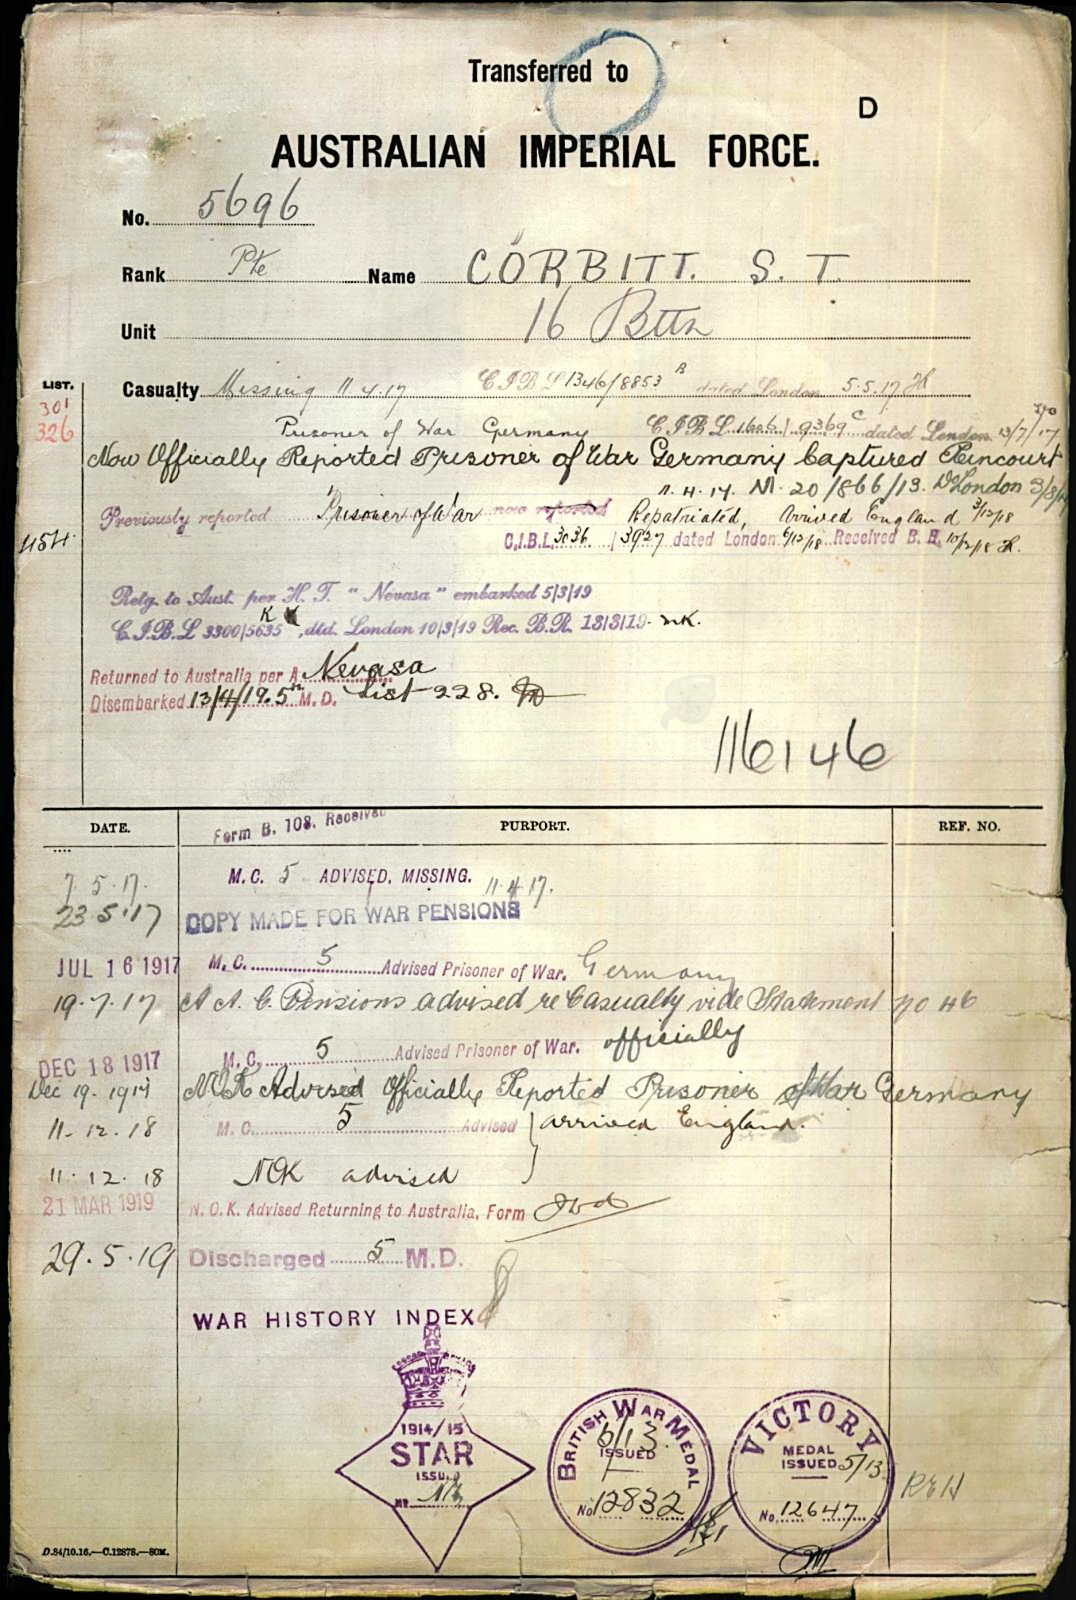 Transferred to
D
AUSTRALIAN IMPERIAL FORCE.
No. 5696
Rank Pte Name CORBITT. S. T.
Unit 16 Bttn
LIST. Casualty Missing 11.4.17 C.I.B.L 1346/8853 B dated London 5.5.17
301
326 Prisoner of War Germany C.I.B.L 1606/9369 C dated London 13/7/17
Now Officially Reported Prisoner of War Germany Captured Reincourt
11.4.17. M. 20/866/13. D London
Previously reported Prisoner of War now reported Repatriated, Arrived England 3/12/18
454. C.I.B.L. 3036 / 3927 dated London 6/12/18 Received B. R. 10/12/18
Retg. to Aust. per H. T. "Nevasa" embarked 5/3/19
C.I.B.L 3300/5635 K, dtd. London 10/3/19 Rec. B.R. 13/3/19.
Returned to Australia per A Nevasa
Disembarked 13/4/19. 5th M. D. List 228.
116146
DATE. Form B. 103. Received PURPORT. REF. NO.
7.5.17. M.C. 5 ADVISED, MISSING. 11.4.17.
23 5.17 COPY MADE FOR WAR PENSIONS
JUL 16 1917 M.C. 5 Advised Prisoner of War. Germany
19.7.17 A A. G. Pensions advised re Casualty vide Statement No 46
DEC 18 1917 M.C. 5 Advised Prisoner of War. officially
Dec 19. 1917 NOK Advised Officially Reported Prisoner of War Germany
11.12.18 M.C. 5 Advised } arrived England.
11.12.18 NOK advised
21 MAR 1919 N.O.K. Advised Returning to Australia, Form
29.5.19 Discharged 5 M.D.
WAR HISTORY INDEX
1914/15
STAR
ISSUED
No
BRITISH WAR MEDAL
6/13.
ISSUED
No 12832
VICTORY
MEDAL
ISSUED 5/13
No. 12647
D.84/10.16.—C.12878.—80M.